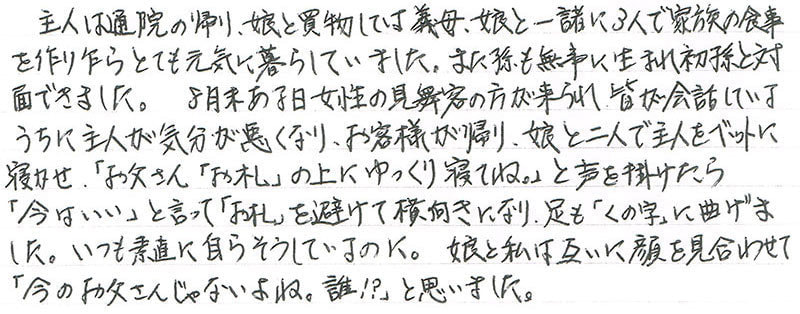 主人は通院の帰り、娘と買物しては義母、娘と一諸に3人で家族の食事
を作り乍らとても元気に暮らしていました。また孫も無事に生まれ初孫と対
面できました。 5月末ある日女性の見舞客の方が来られ、皆が会話している
うちに主人が気分が悪くなり、お客様が帰り、娘と二人で主人をベットに
寝かせ、「お父さん「お札」の上にゆっくり寝てね。」と声を掛けたら
「今はいい」と言って「お札」を避けて横向きになり、足も「くの字」に曲げま
した。いつも素直に自らそうしているのに。 娘と私は互いに顔を見合わせて
「今のお父さんじゃないよね。誰!?」と思いました。